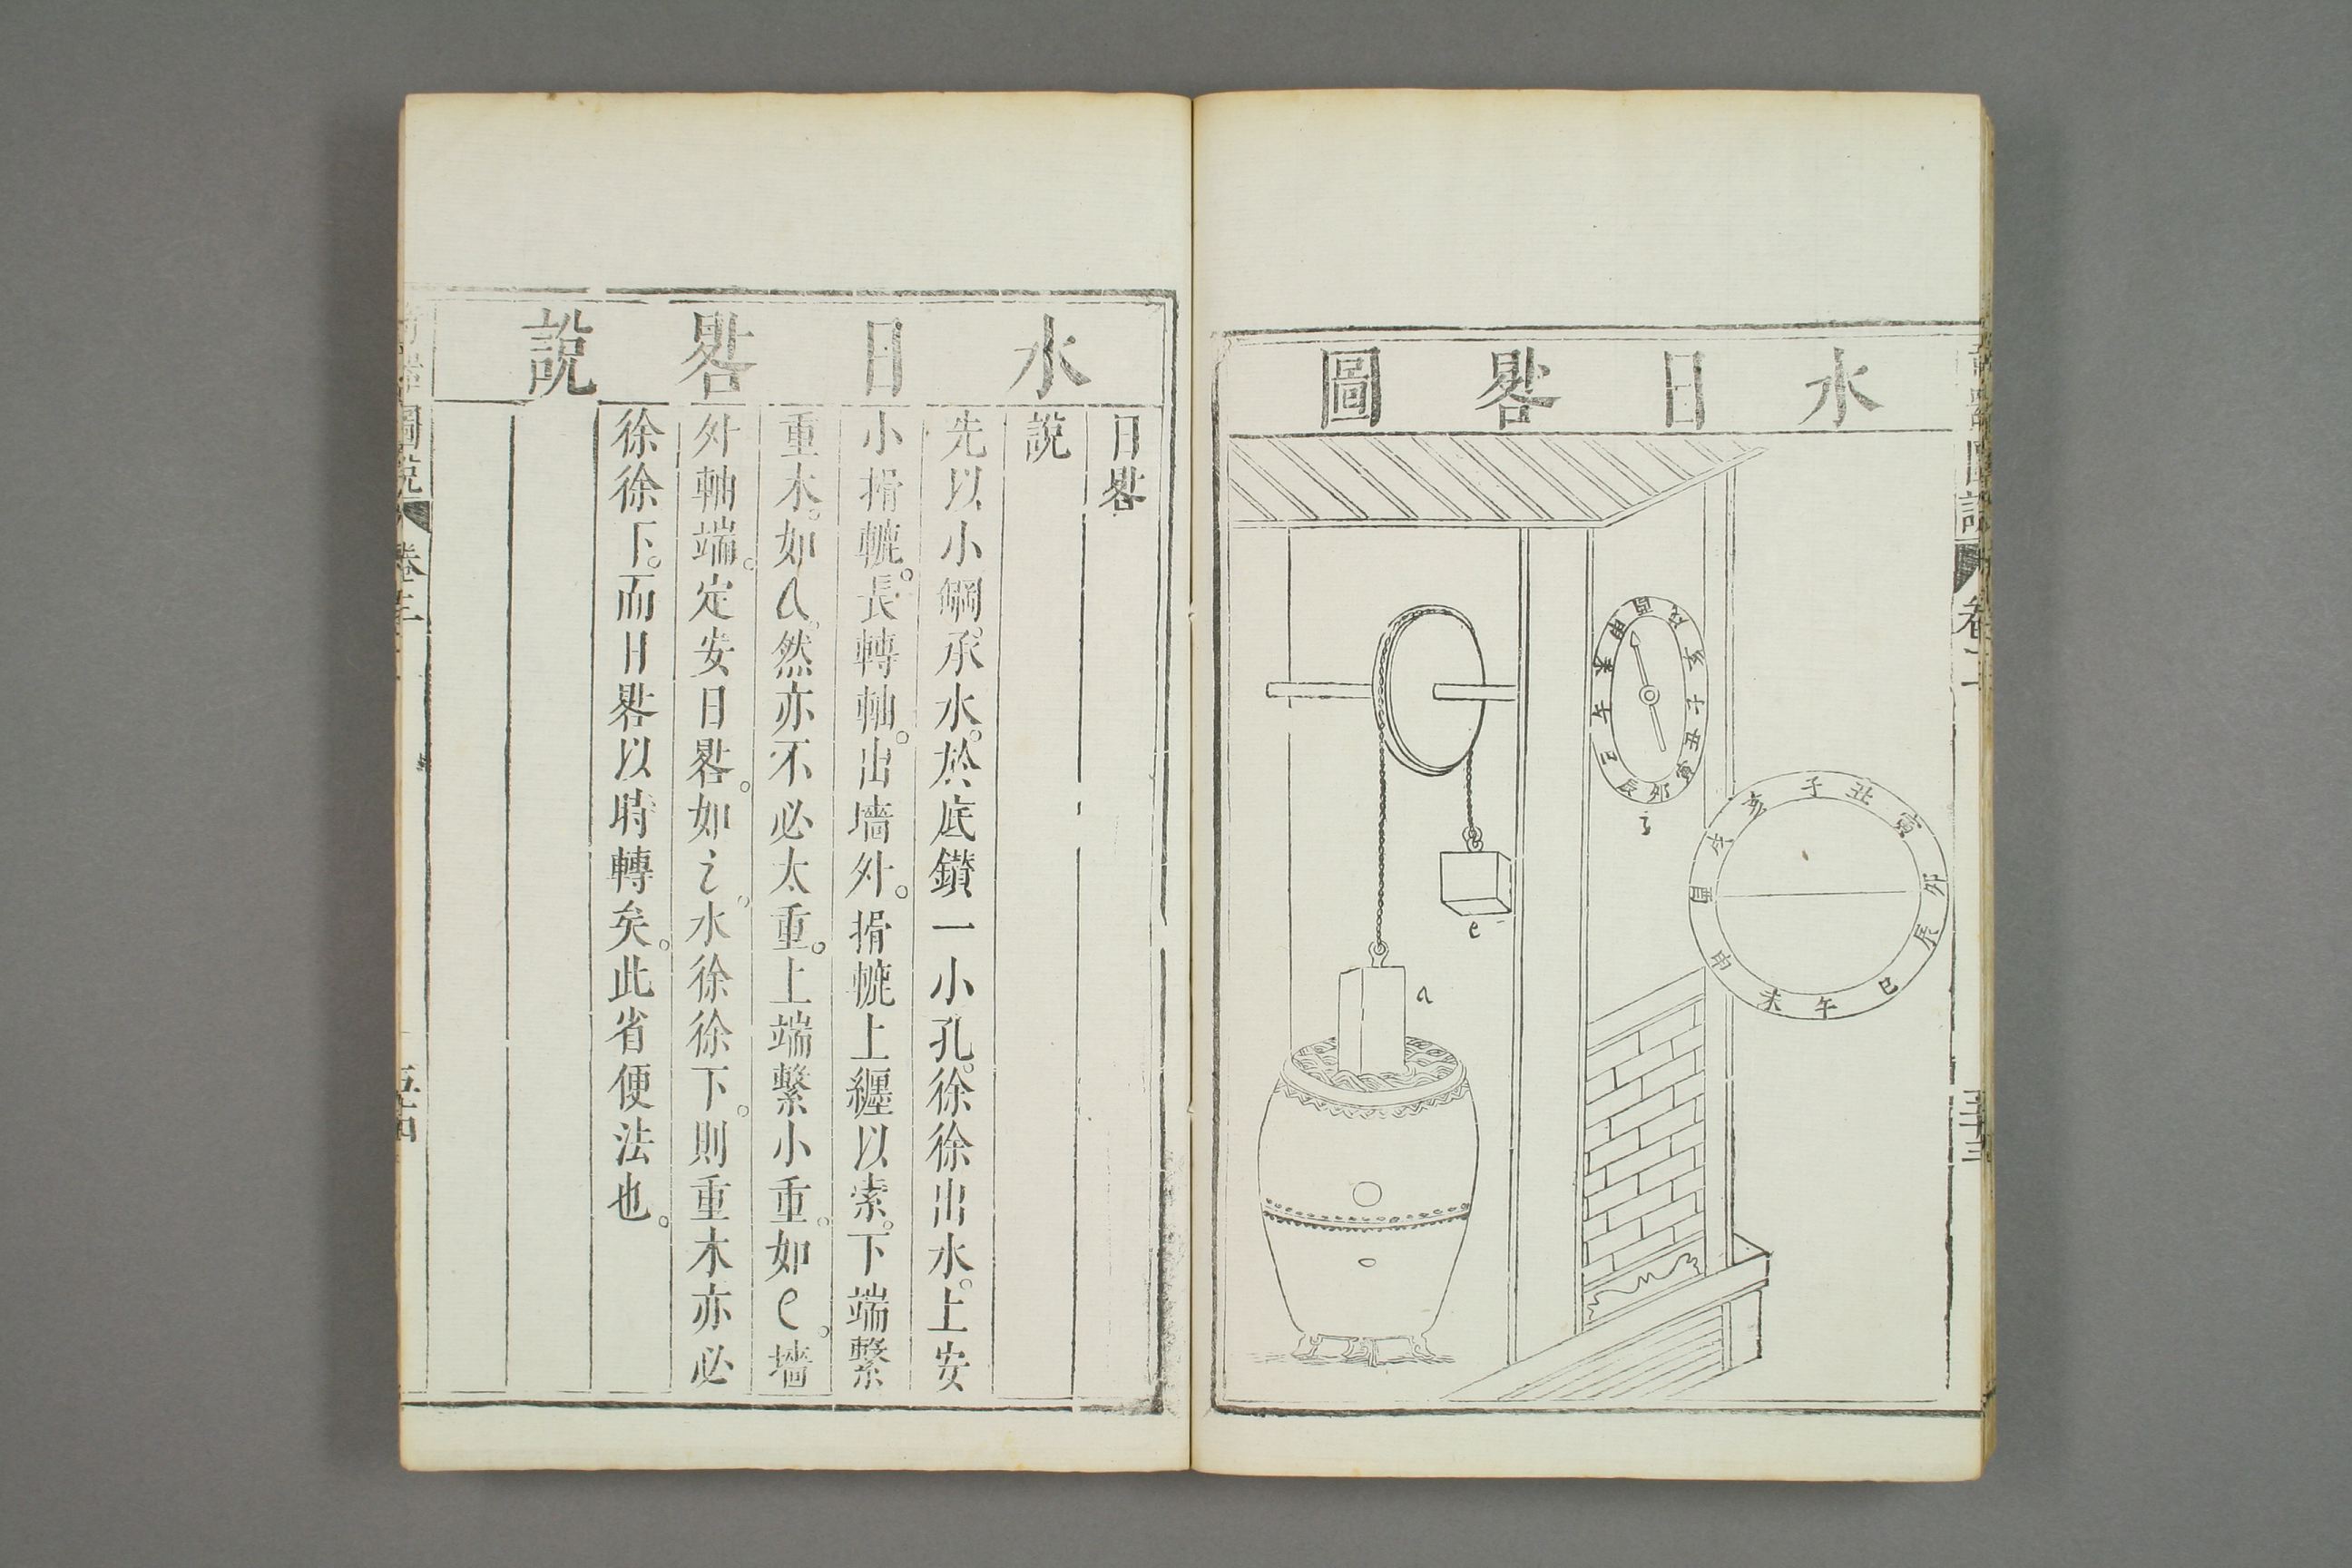 水日晷圖
酉戌亥子丑寅卯辰巳午未申
i
子丑寅卯辰巳午未申酉戌亥
e
a
卷三
五十三
水日晷說
日晷
說
先以小罁。承水。於底鑽一小孔。徐徐出水。上安
小搰轆。長轉軸。出墻外。搰轆上纏以索。下端繫
重木。如a。然亦不必太重。上端繫小重。如e。墻
外軸端。定安日晷。如i。水徐徐下。則重木亦必
徐徐下。而日晷以時轉矣。此省便法也。
圖說
卷三
五十四